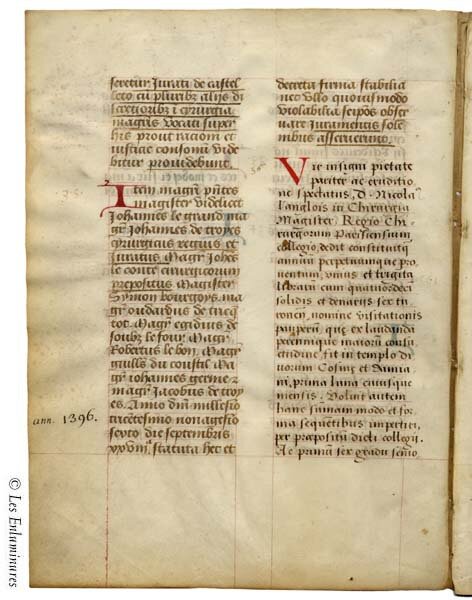 seretur Jurati de castel
leto cū pluribꝰ alijs di
scretioribꝰ ī cyrurgia
magr̄is vocati super
his prout racioni et
iusticie consonū vide
bitur prouidebunt.
Item magr̄i
magister videlicet
Johannes le grand ma
gr̄ Johannes de troyes
cyrurgicus regius et
Juratus Magr̄ Johēs
le conte cirurgicorum
prepositus Magister
Symon bourgoys, ma
gr̄ oudardus de
Magr̄ egidius de
le four, Magr̄
Robertus le bon, Magr̄
guill̄s du Ma
gr̄ iohannes
magr̄ Jacobus de troy
es. Anno dn̄i millesīo
tricētesimo nonagesīo
sexto die septembris
xxviijᵃ, statuta hec et
ann. 1396.
decreta firma stabilia
nec vllo quouis modo
violabilia seipos obser
uare Juramentis sole
mnibus asseruerunt.
Vir insigni pietate
pariter ac eruditio
ne spectatus, D. Nicolaꝰ
Langlois in Chirurgia
Magister, Regio Chi
rurgorum Parisiensium
collegio, dedit constituitq̄
annuū perpetuumque pro
uentum, vnius et triginta
librarū cum quatuordeci
solidis et denarijs sex tu
ronen̄, nomine visitationis
pauperū, que ex laudanda
perennique maiorū consu
etudine, fit in templo di
uorum Cosmę et Damia
ni, prima luna cuiusque
mensis. Voluit autem
hanc summam modo et for
ma sequētibus impertiri,
per prępositū dicti collegij.
Ac primū sex gradu senio
© Les Enluminures